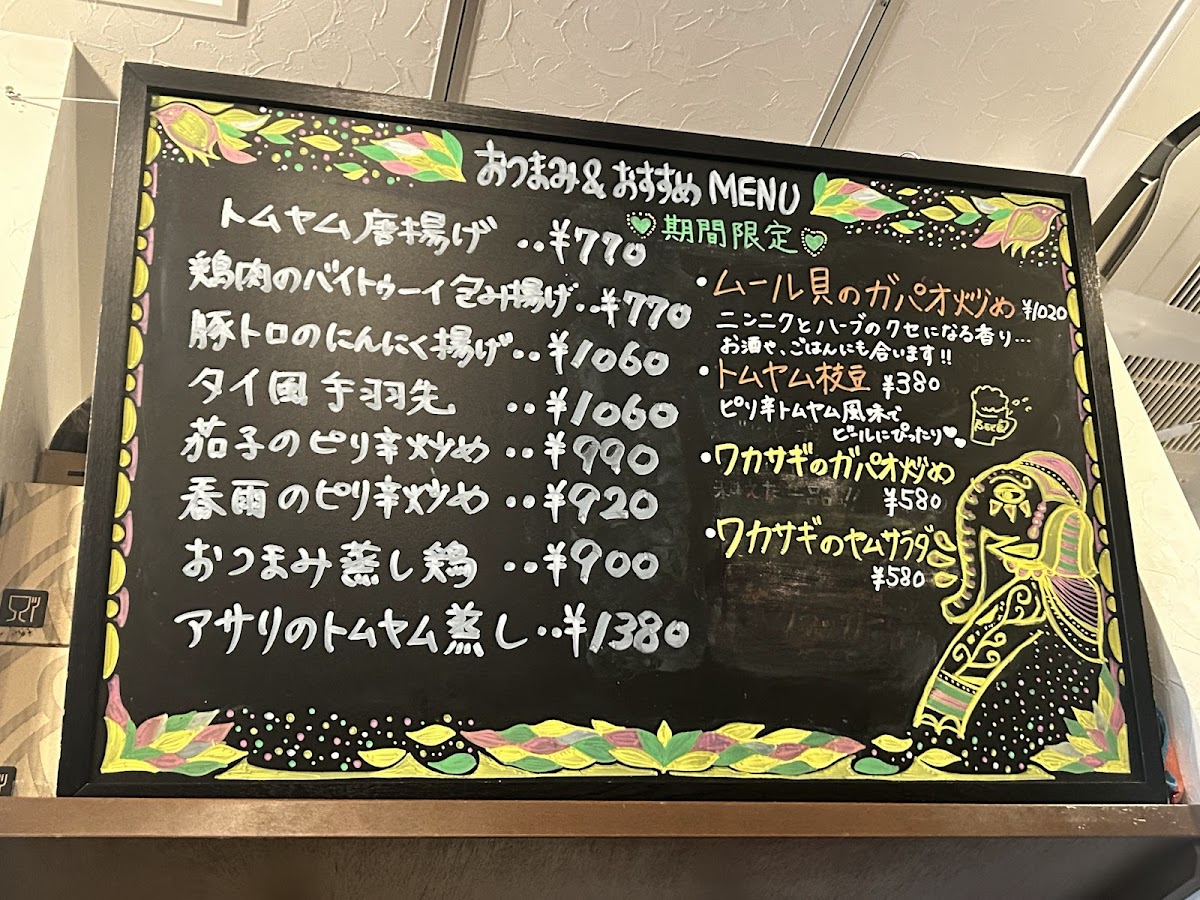 おつまみ&おすすめ MENU
トムヤム唐揚げ ‥¥770
鶏肉のバイトゥーイ包み揚げ‥¥770
豚トロのにんにく揚げ‥¥1060
タイ風手羽先 ‥¥1060
茄子のピリ辛炒め ‥¥990
春雨のピリ辛炒め ‥¥920
おつまみ蒸し鶏 ‥¥900
アサリのトムヤム蒸し‥¥1380
期間限定
・ムール貝のガパオ炒め ¥1020
ニンニクとハーブのクセになる香り…
お酒や、ごはんにも合います!!
・トムヤム枝豆 ¥380
ピリ辛トムヤム風味で
ビールにぴったり♥♥
BEER
・ワカサギのガパオ炒め
¥580
・ワカサギのヤムサラダ
¥580